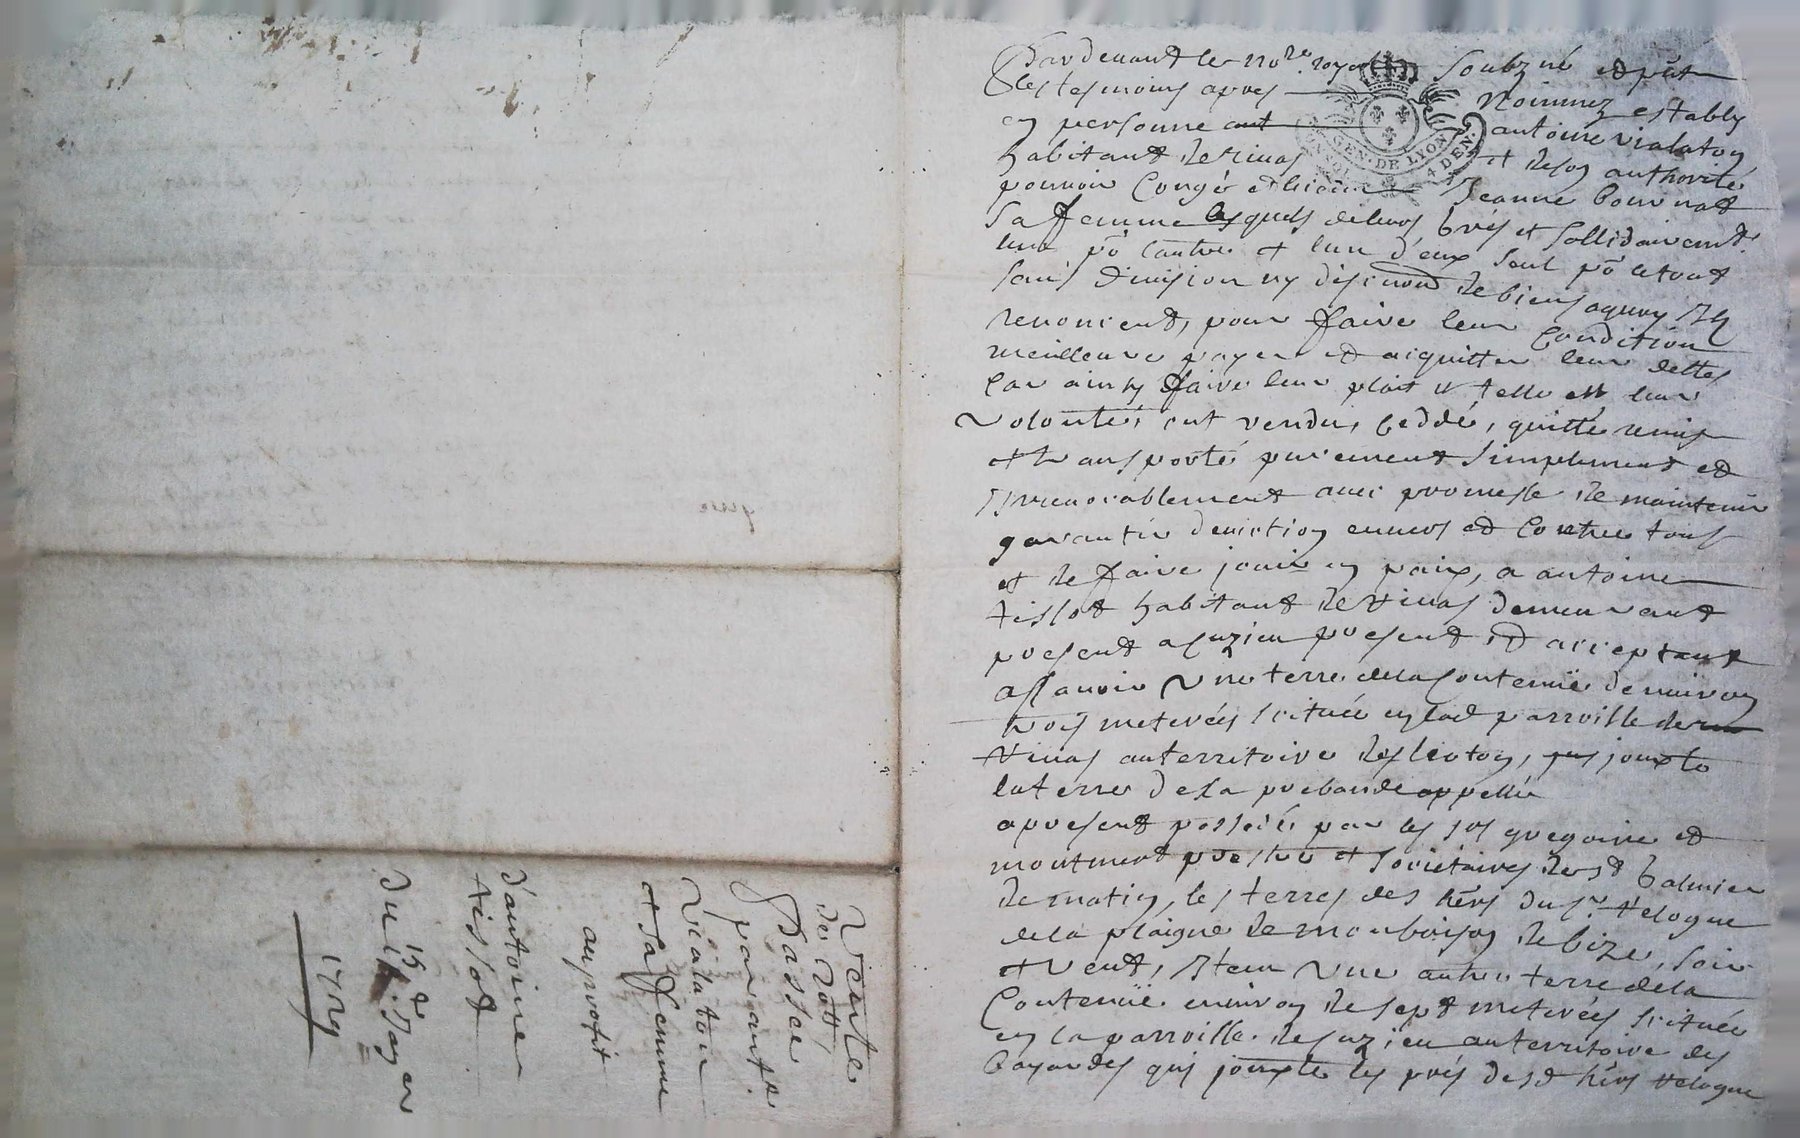 Pardevant le no.re royal soubz.né et pñt
les tesmoins apres nommez estably
en personne ant antoine vialaton
habitant de rivas et de son authorité
pouvoir congé et licence Jeanne bournat
sa femme lesquels de leurs grés et sollidairemt
lun pō lautre et lun d'eux seul pō le tout
sans division ny de biens aquoy Ilz
renoncent, pour faire leur condition
meilleure payer et aiquitter leur dettes
car ainsy faire leur plait et telle est leur
volonté, ont vendu, ceddé, quitté remis
et transporté purement simplement et
Irrevocablement avec promesse de maintenir
garantir deviction envers et contre tous
et de faire jouir en paix, a antoine
tissot habitant de rivas demeurant
present a suzieu present et acceptant
assavoir une terre de la contenuë denviron
trois meterées scituée en lad parroisse de
rivas au territoire des
la terre de la prebande appellée
apresent possedé par les srs gregoire et
montmert prestre et societaires de st galmier
de matin, les terres des hers du sr
de la plaigne de de bize, soir
et vent, Item une autre terre de la
contenuë environ de sept meterées scituée
en la parroisse de suzieu au territoire des
qui jouxte les prés desd hers
GEN. DE LYON
4 DEN.
Vente
de 20tt
Passée
par ant.e
Vialaton
et sa femme
au profit
d'antoine
tissot
Du 15e Janer